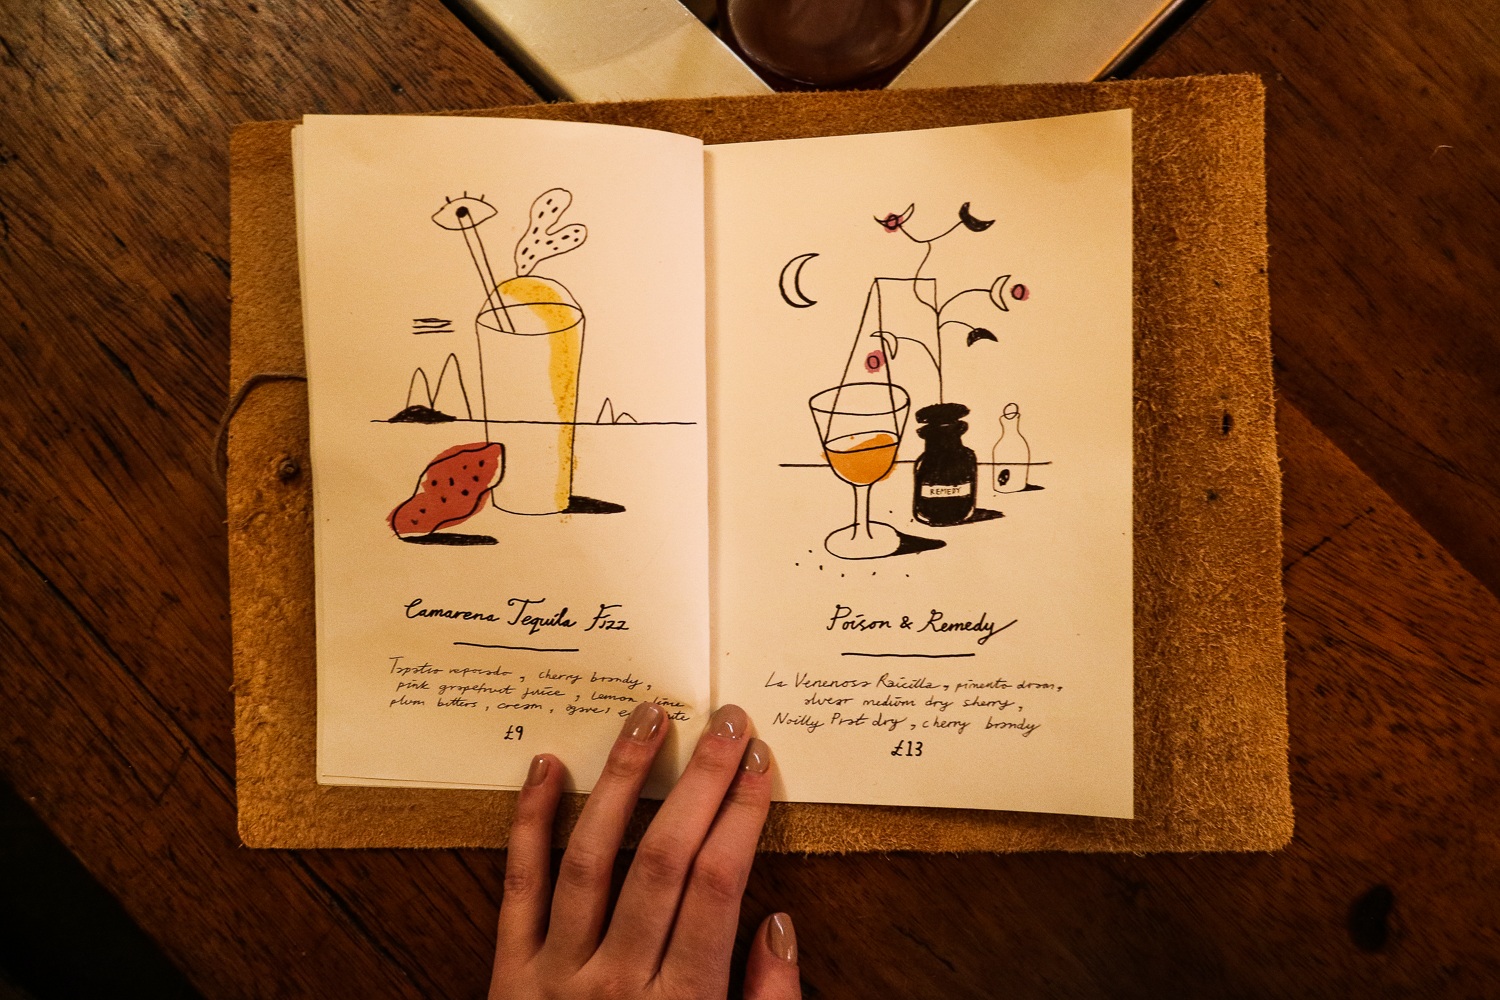 Camarena Tequila Fizz
Tapatio reposado, cherry brandy,
pink grapefruit juice, lemon, lime
plum bitters, cream, agave,
£9
REMEDY
Poison & Remedy
La Venenosa Raicilla, pimento dram,
alvear medium dry sherry,
Noilly Prat dry, cherry brandy
£13